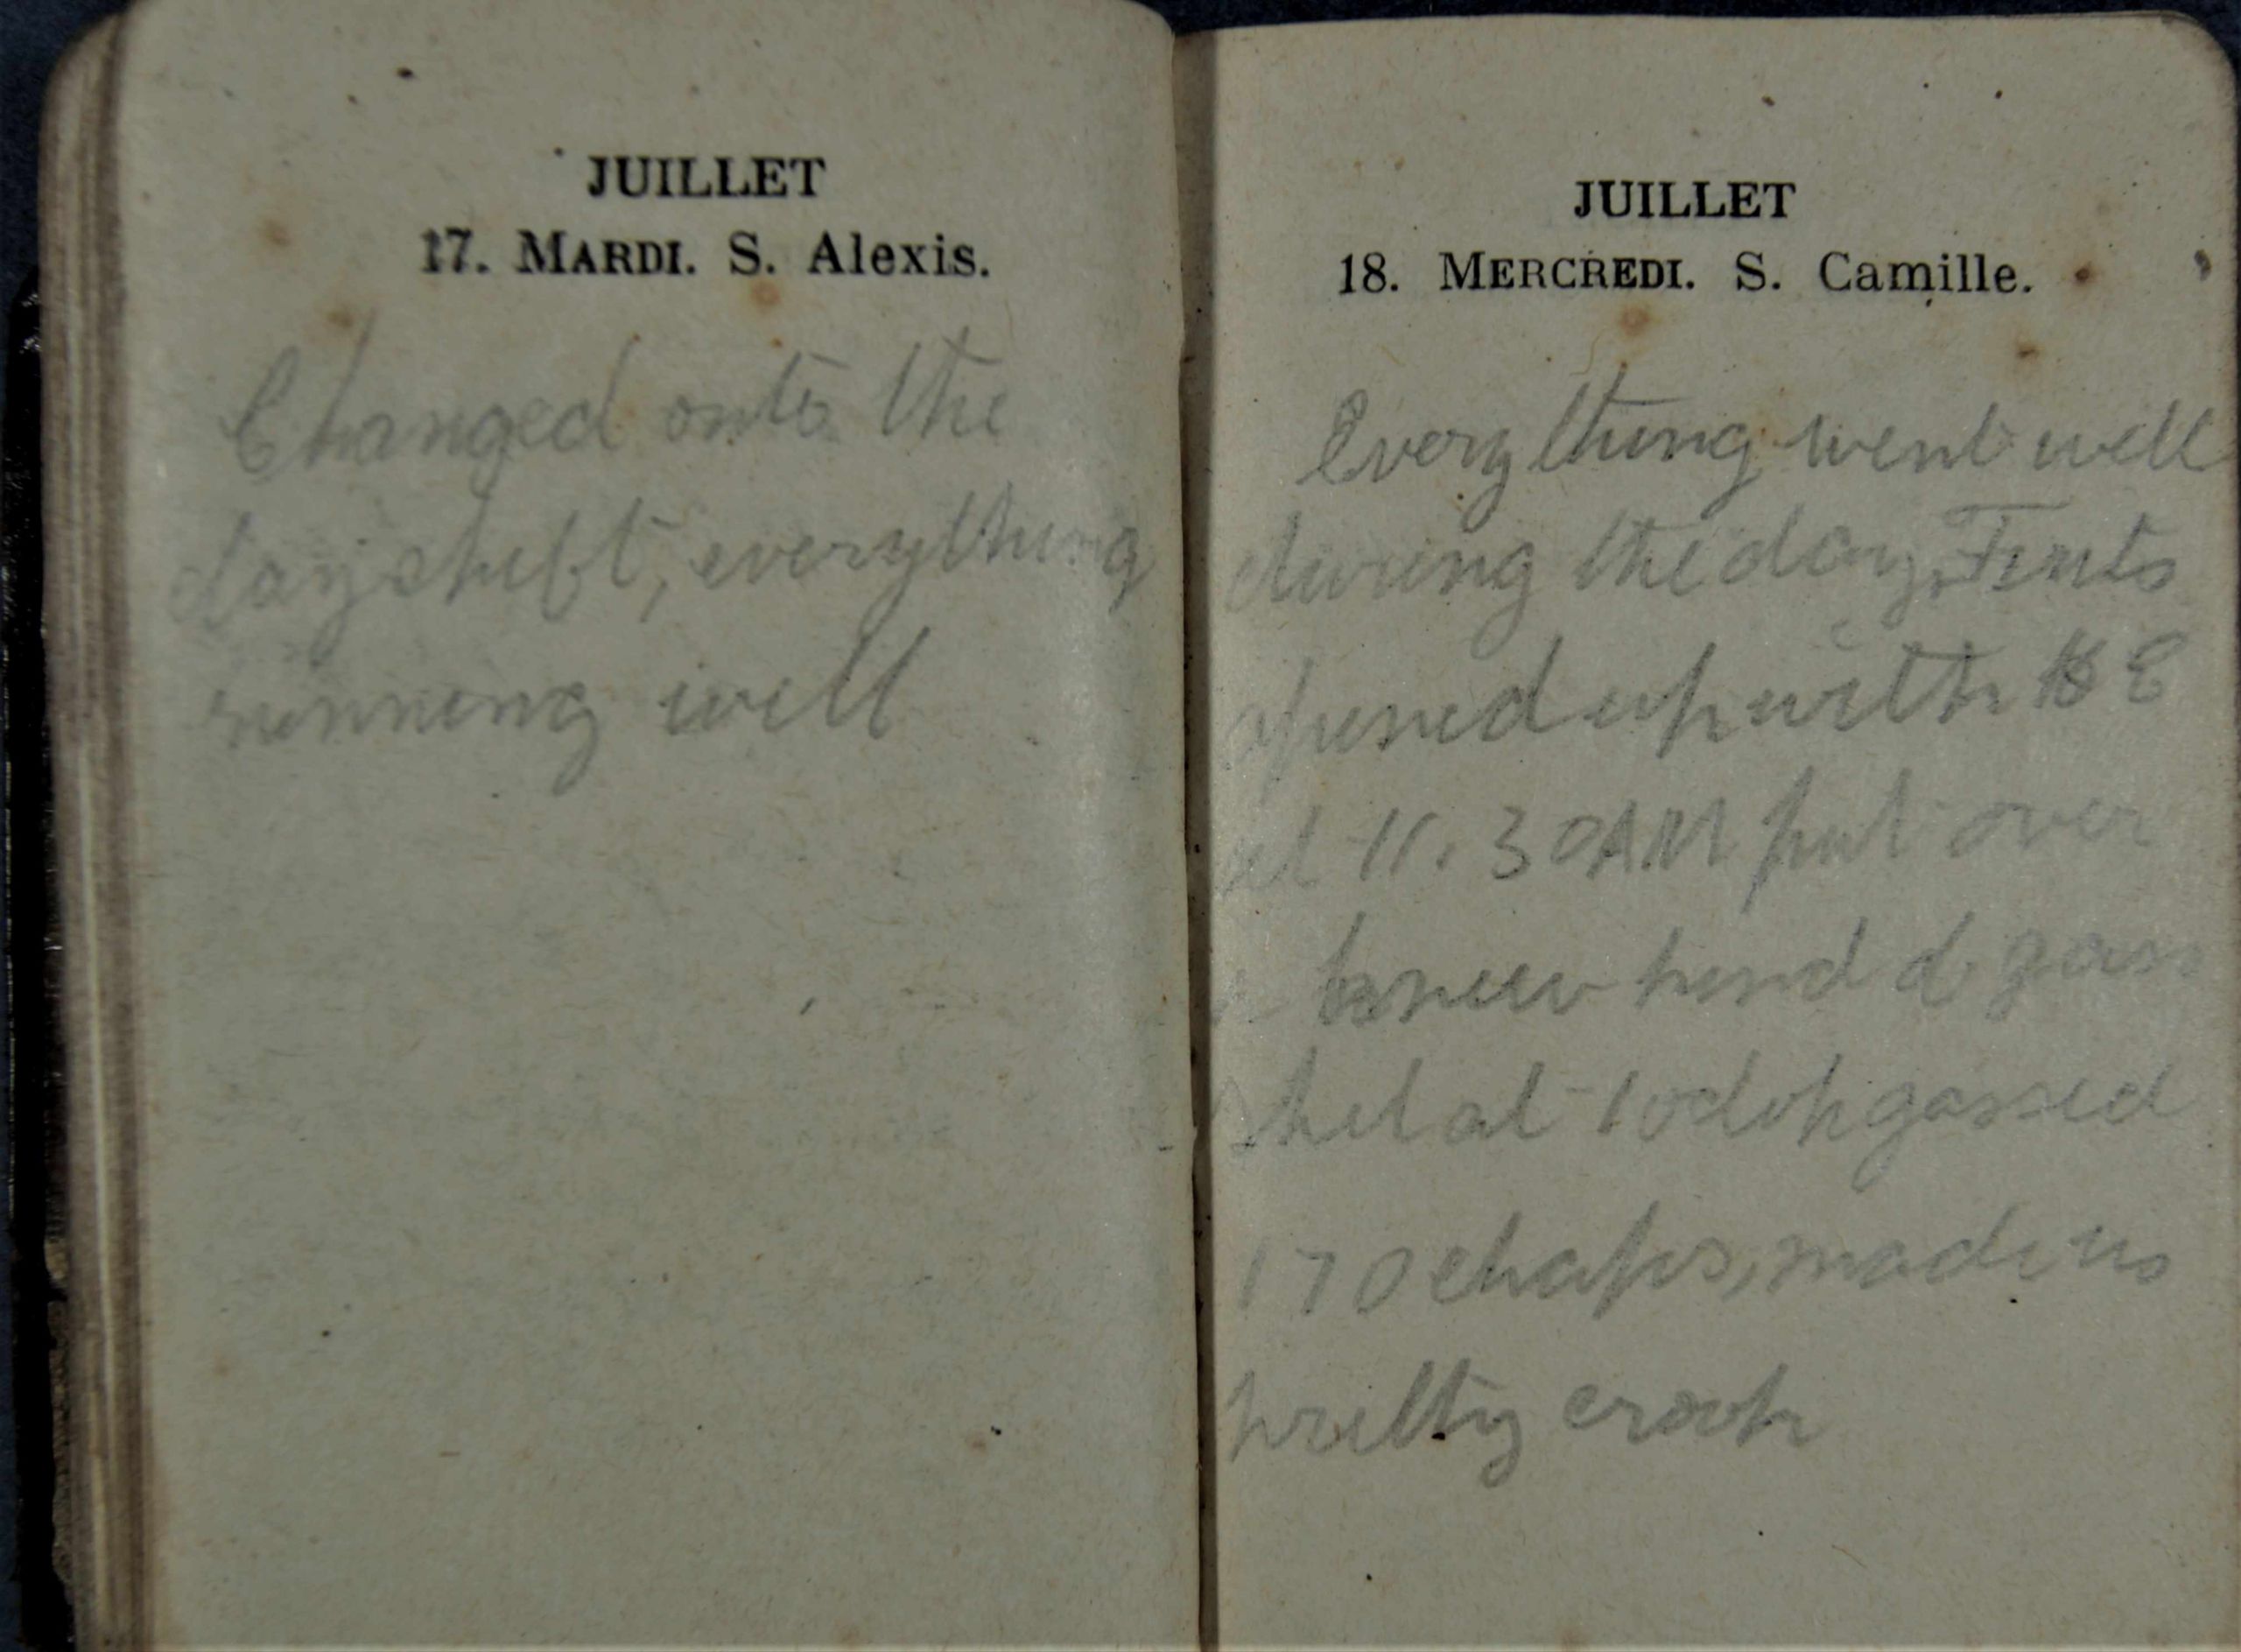 JUILLET
17. MARDI. S. Alexis.
Changed onto the
dayshift, everything
running well
JUILLET
18. MERCREDI. S. Camille.
Everything went well
during the day, Frits
opened up with H E
at 11. 30 AM put over
a new kind of gas
shel at
170 chaps, made us
pretty crook